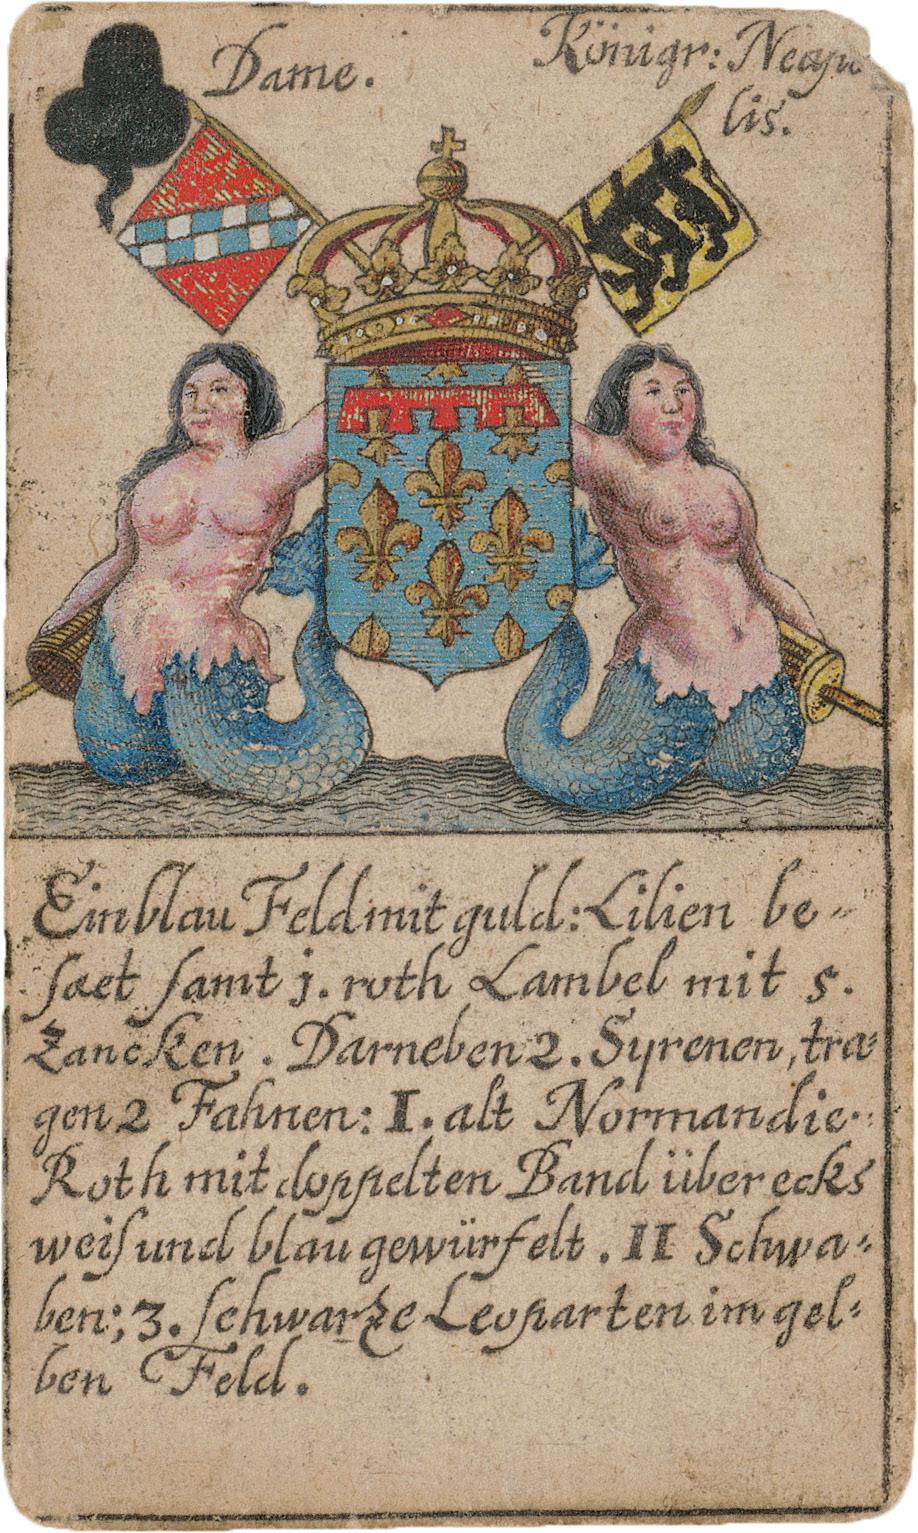 Dame. Königr: Neapo
lis.
Ein blau Feld mit guld: Lilien be-
saet samt j. roth Lambel mit 5.
Zancken. Darneben 2. Syrenen, tra-
gen 2 Fahnen: I. alt Normandie.
Roth mit doppelten Band überecks
weis und blau gewürfelt. II Schwa-
ben; 3. schwarze Leoparten im gel-
ben Feld.